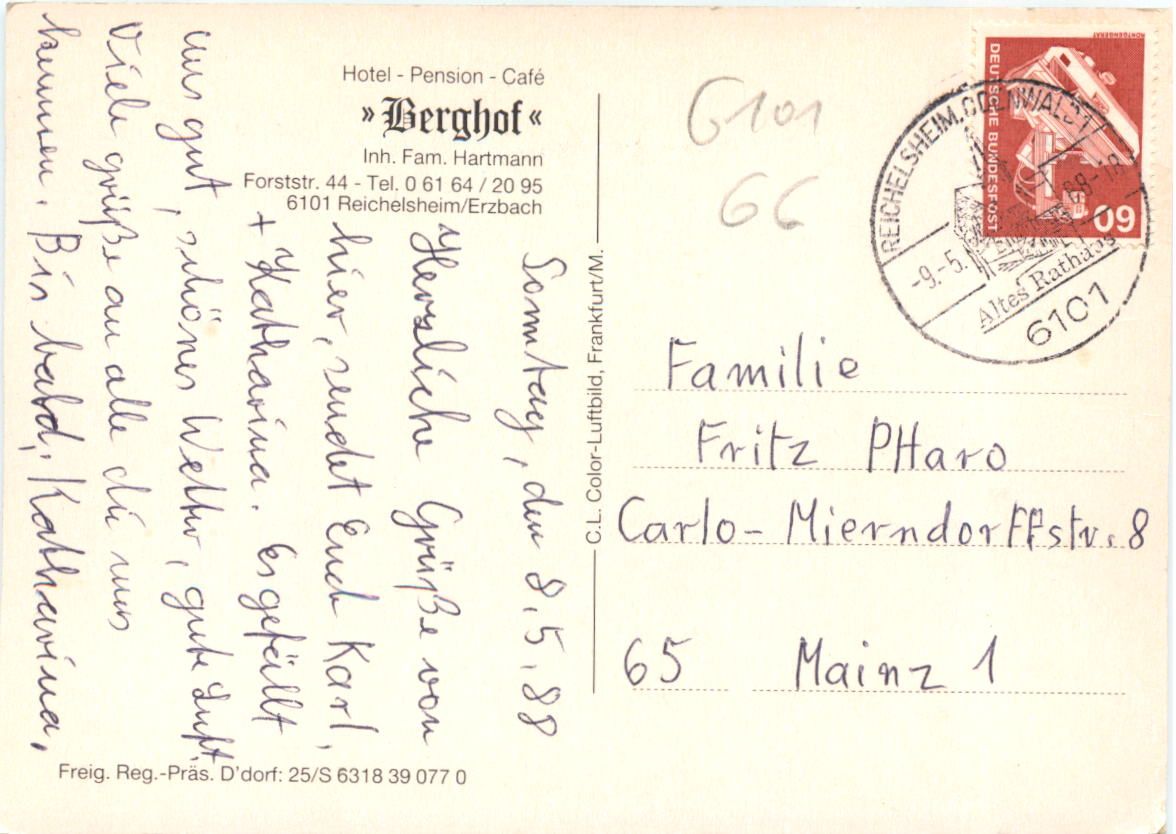 Hotel - Pension - Café
» Berghof «
Inh. Fam. Hartmann
Forststr. 44 - Tel. 0 61 64 / 20 95
6101 Reichelsheim/Erzbach
Sonntag, den 8.5.88
Herzliche Grüße von
hier, sendet Euch Karl,
+ Katharina. Es gefällt
uns gut, schönes Wetter, gute Luft.
Viele grüße an alle die uns
kennnen. Bis bald, Katharina,
Freig. Reg.-Präs. D'dorf: 25/S 6318 39 077 0
C.L. Color-Luftbild, Frankfurt/M.
6101
66
RÖNTGENGERÄT
DEUTSCHE BUNDESPOST
60
REICHELSHEIM, ODENWALD 1
-9.-5. 88-18
Altes Rathaus
6101
Familie
Fritz PHaro
Carlo-Mierndorffstr. 8
65 Mainz 1